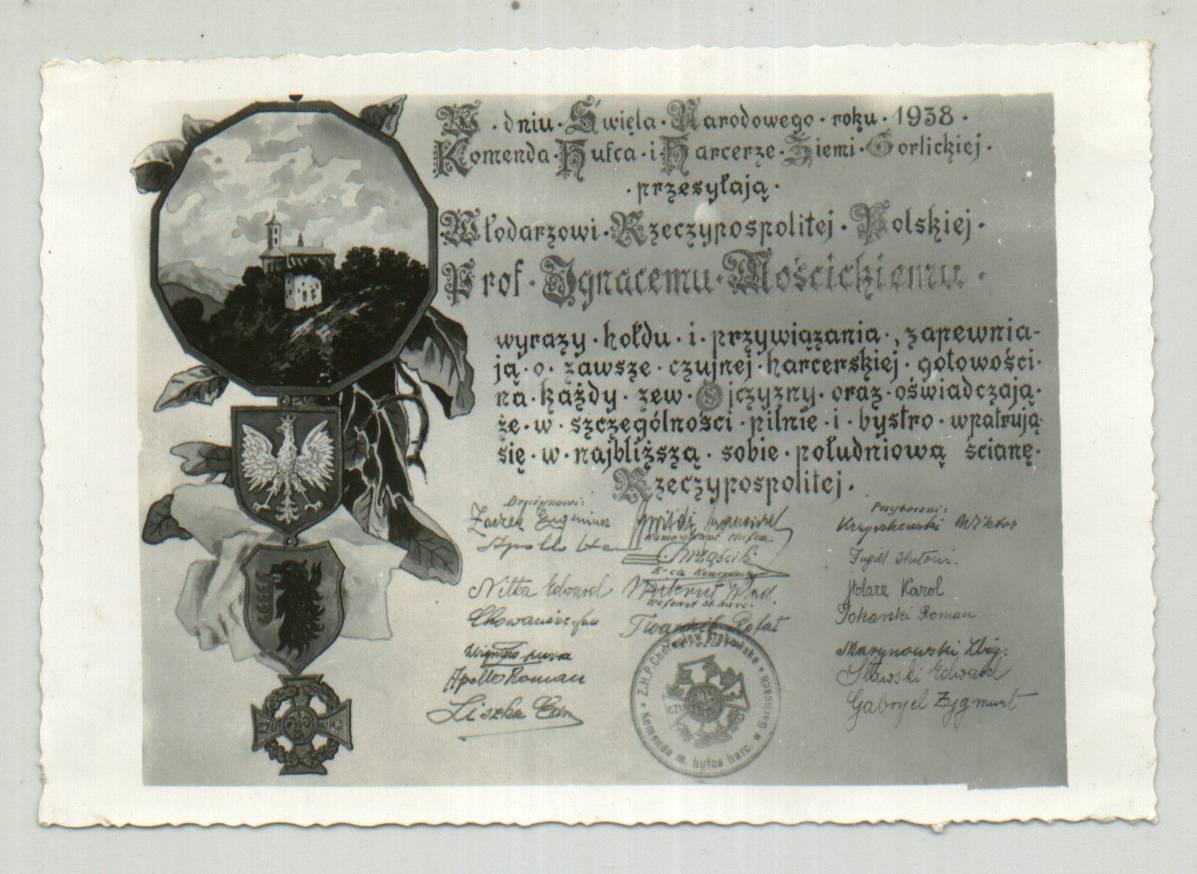 W · dniu · Święta · Narodowego · roku · 1938 ·
Komenda · Hufca · i · Harcerze · Ziemi · Gorlickiej ·
· przesyłają ·
Włodarzowi · Rzeczypospolitej · Polskiej ·
Prof · Ignacemu · Mościckiemu ·
wyrazy · hołdu · i · przywiązania · , zapewnia-
ją · o · zawsze · czujnej · harcerskiej · gotowości ·
na · każdy · zew · Ojczyzny · oraz · oświadczają ·
że · w · szczególności · pilnie · i · bystro · wpatrują
się · w · najbliższą · sobie · południową ścianę ·
Rzeczypospolitej ·
Drużynowi:
Eugeniusz
Apollo
Nitka Edward
Apollo Roman
Liszka
Komendant Hufca
Chrząścik
Z-ca Komendanta
Twardzik Rafał
Przyboczni:
Krzyszkowski Wiktor
Antoni
Karol
Roman
Marynowski Zbig.
Sławski Edward
Gabryel Zygmunt
Z.H.P. Chorągiew Krakowska
Komenda m. hufca harc. w Gorlicach
CZUWAJ